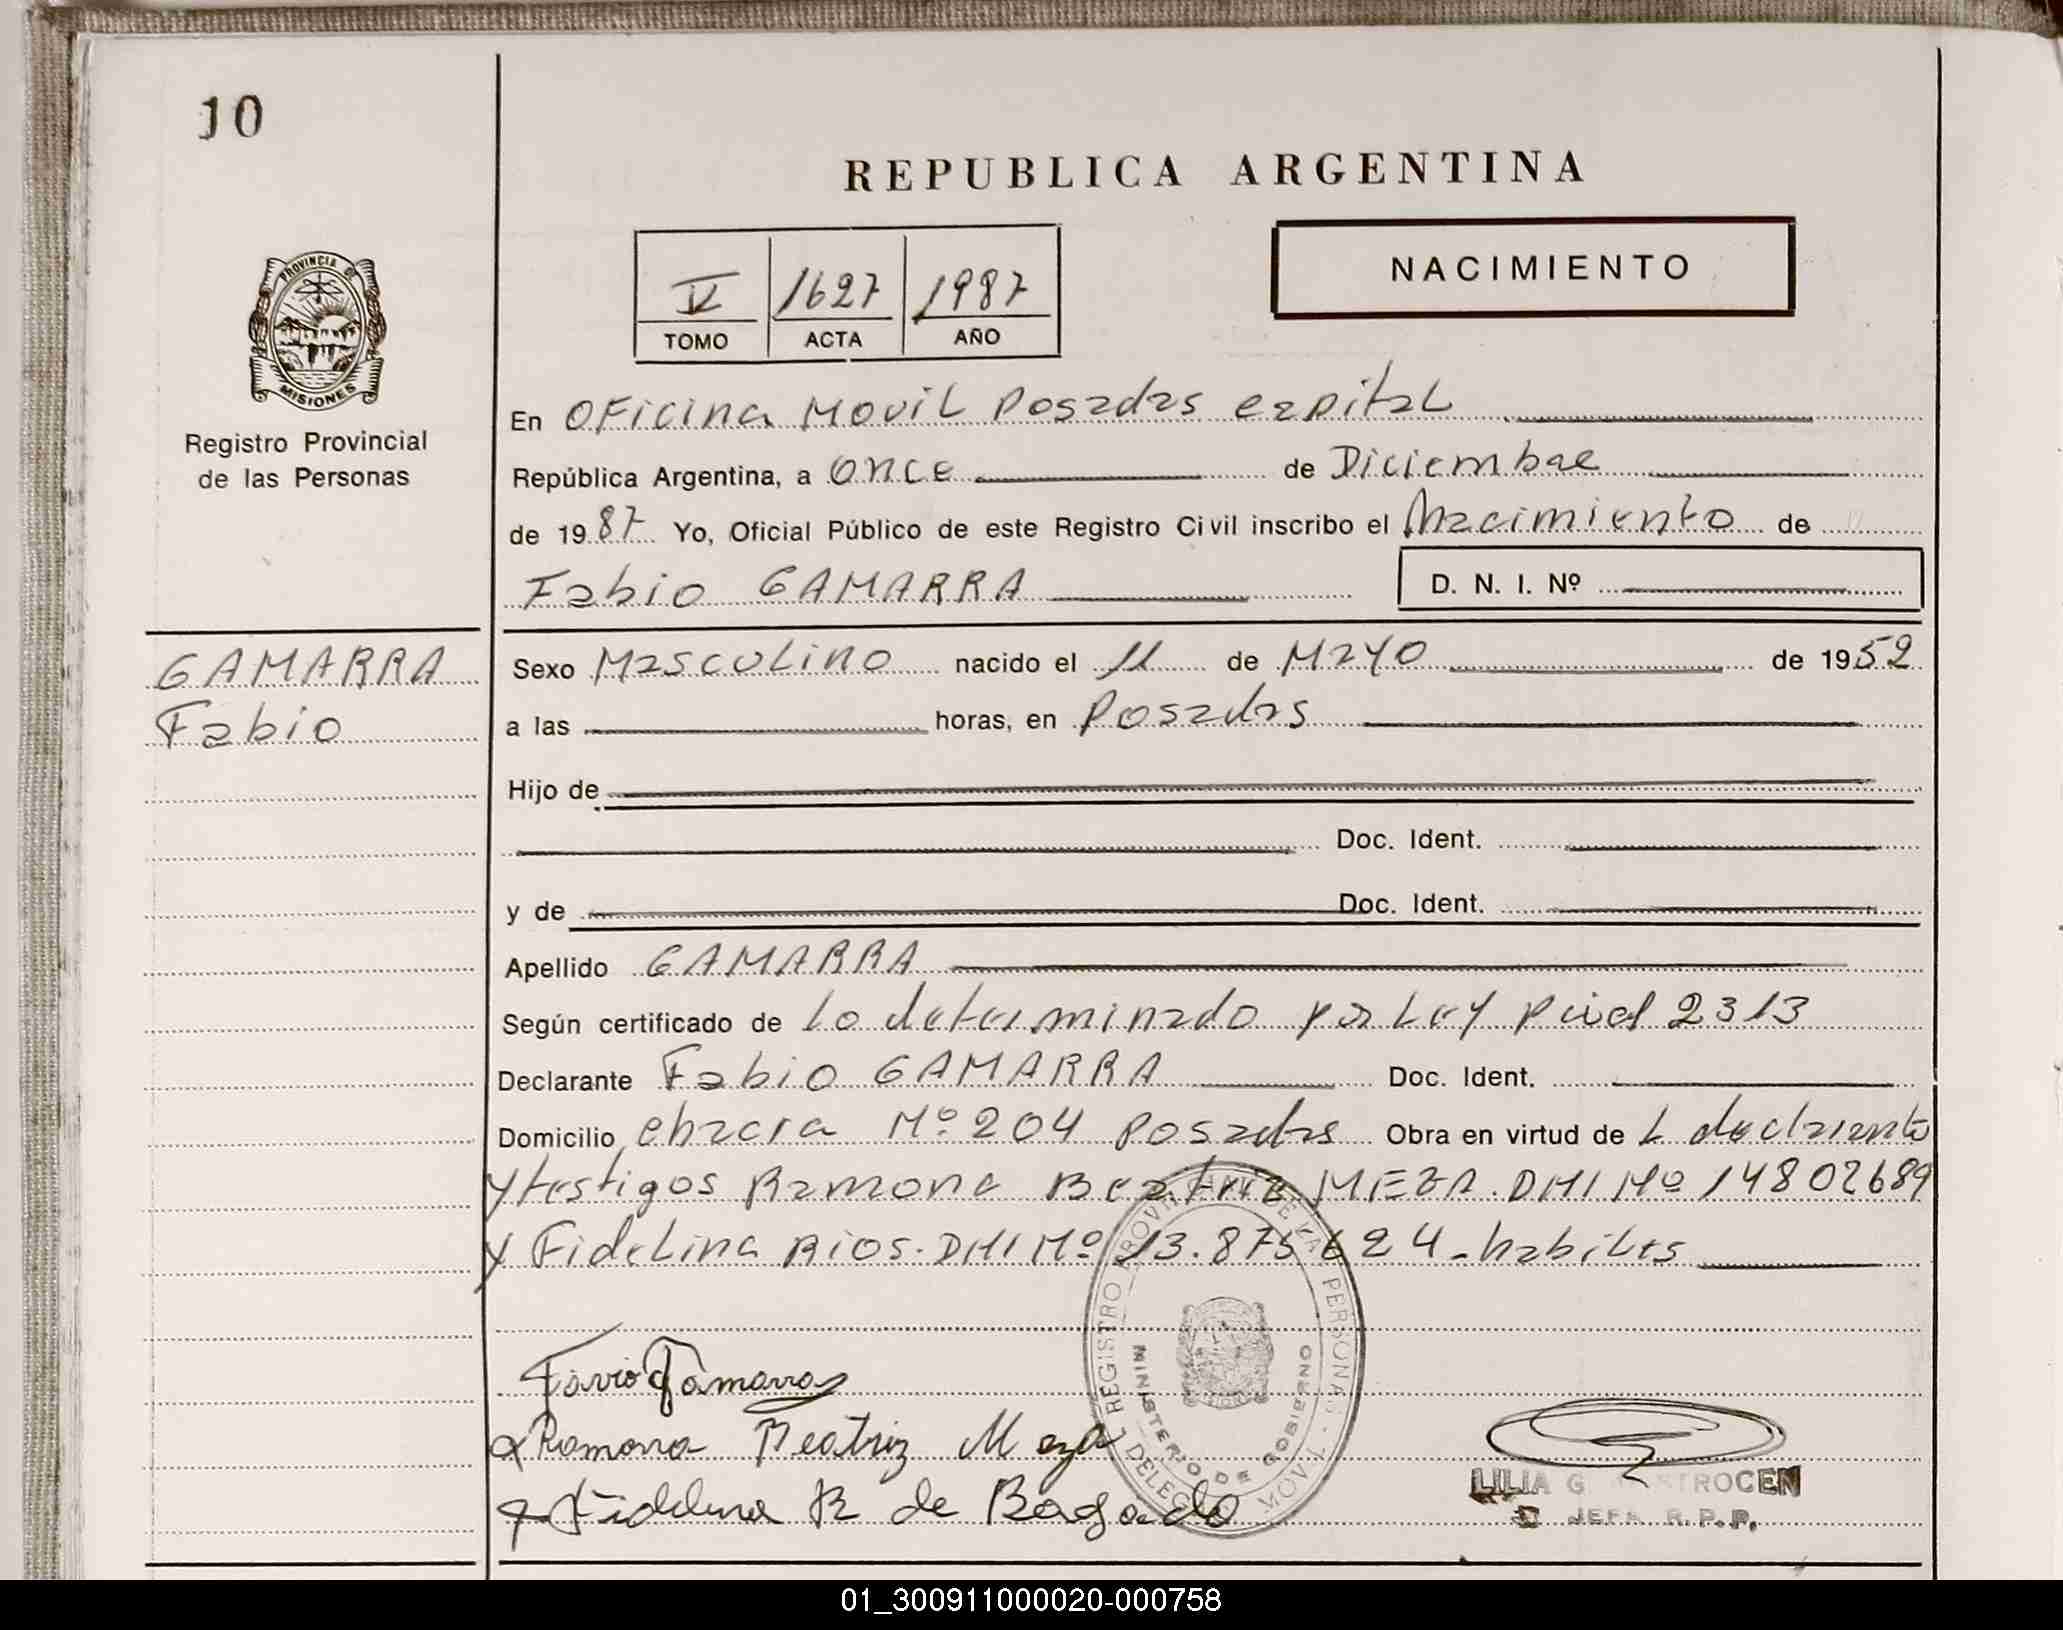 10
REPUBLICA ARGENTINA
NACIMIENTO
V 1627 1987
TOMO ACTA AÑO
PROVINCIA DE
MISIONES
Registro Provincial
de las Personas
En Oficina Movil Posadas capital
República Argentina, a once de Diciembre
de 1987 Yo, Oficial Público de este Registro Civil inscribo el Nacimiento de
Fabio GAMARRA D. N. I. Nº
GAMARRA
Fabio
Sexo Masculino nacido el 11 de MAYO de 1952
a las horas, en Posadas
Hijo de
Doc. Ident.
y de Doc. Ident.
Apellido GAMARRA
Según certificado de Lo determinado por Ley Pcial 2313
Declarante Fabio GAMARRA Doc. Ident.
Domicilio Nº 204 Posadas Obra en virtud de L declarante
y testigos Ramona Beatriz MEZA. DNI Nº 14802689
y Fidelina Rios. DNI Nº 13.875624 - habiles
Favio Gamarra
Ramona Beatriz Meza
Fidelina R de Bogado
REGISTRO PROVINCIAL DE LAS PERSONAS
MINISTERIO DE GOBIERNO
MOVIL
LILIA G
JEFA R.P.P.
01_300911000020-000758